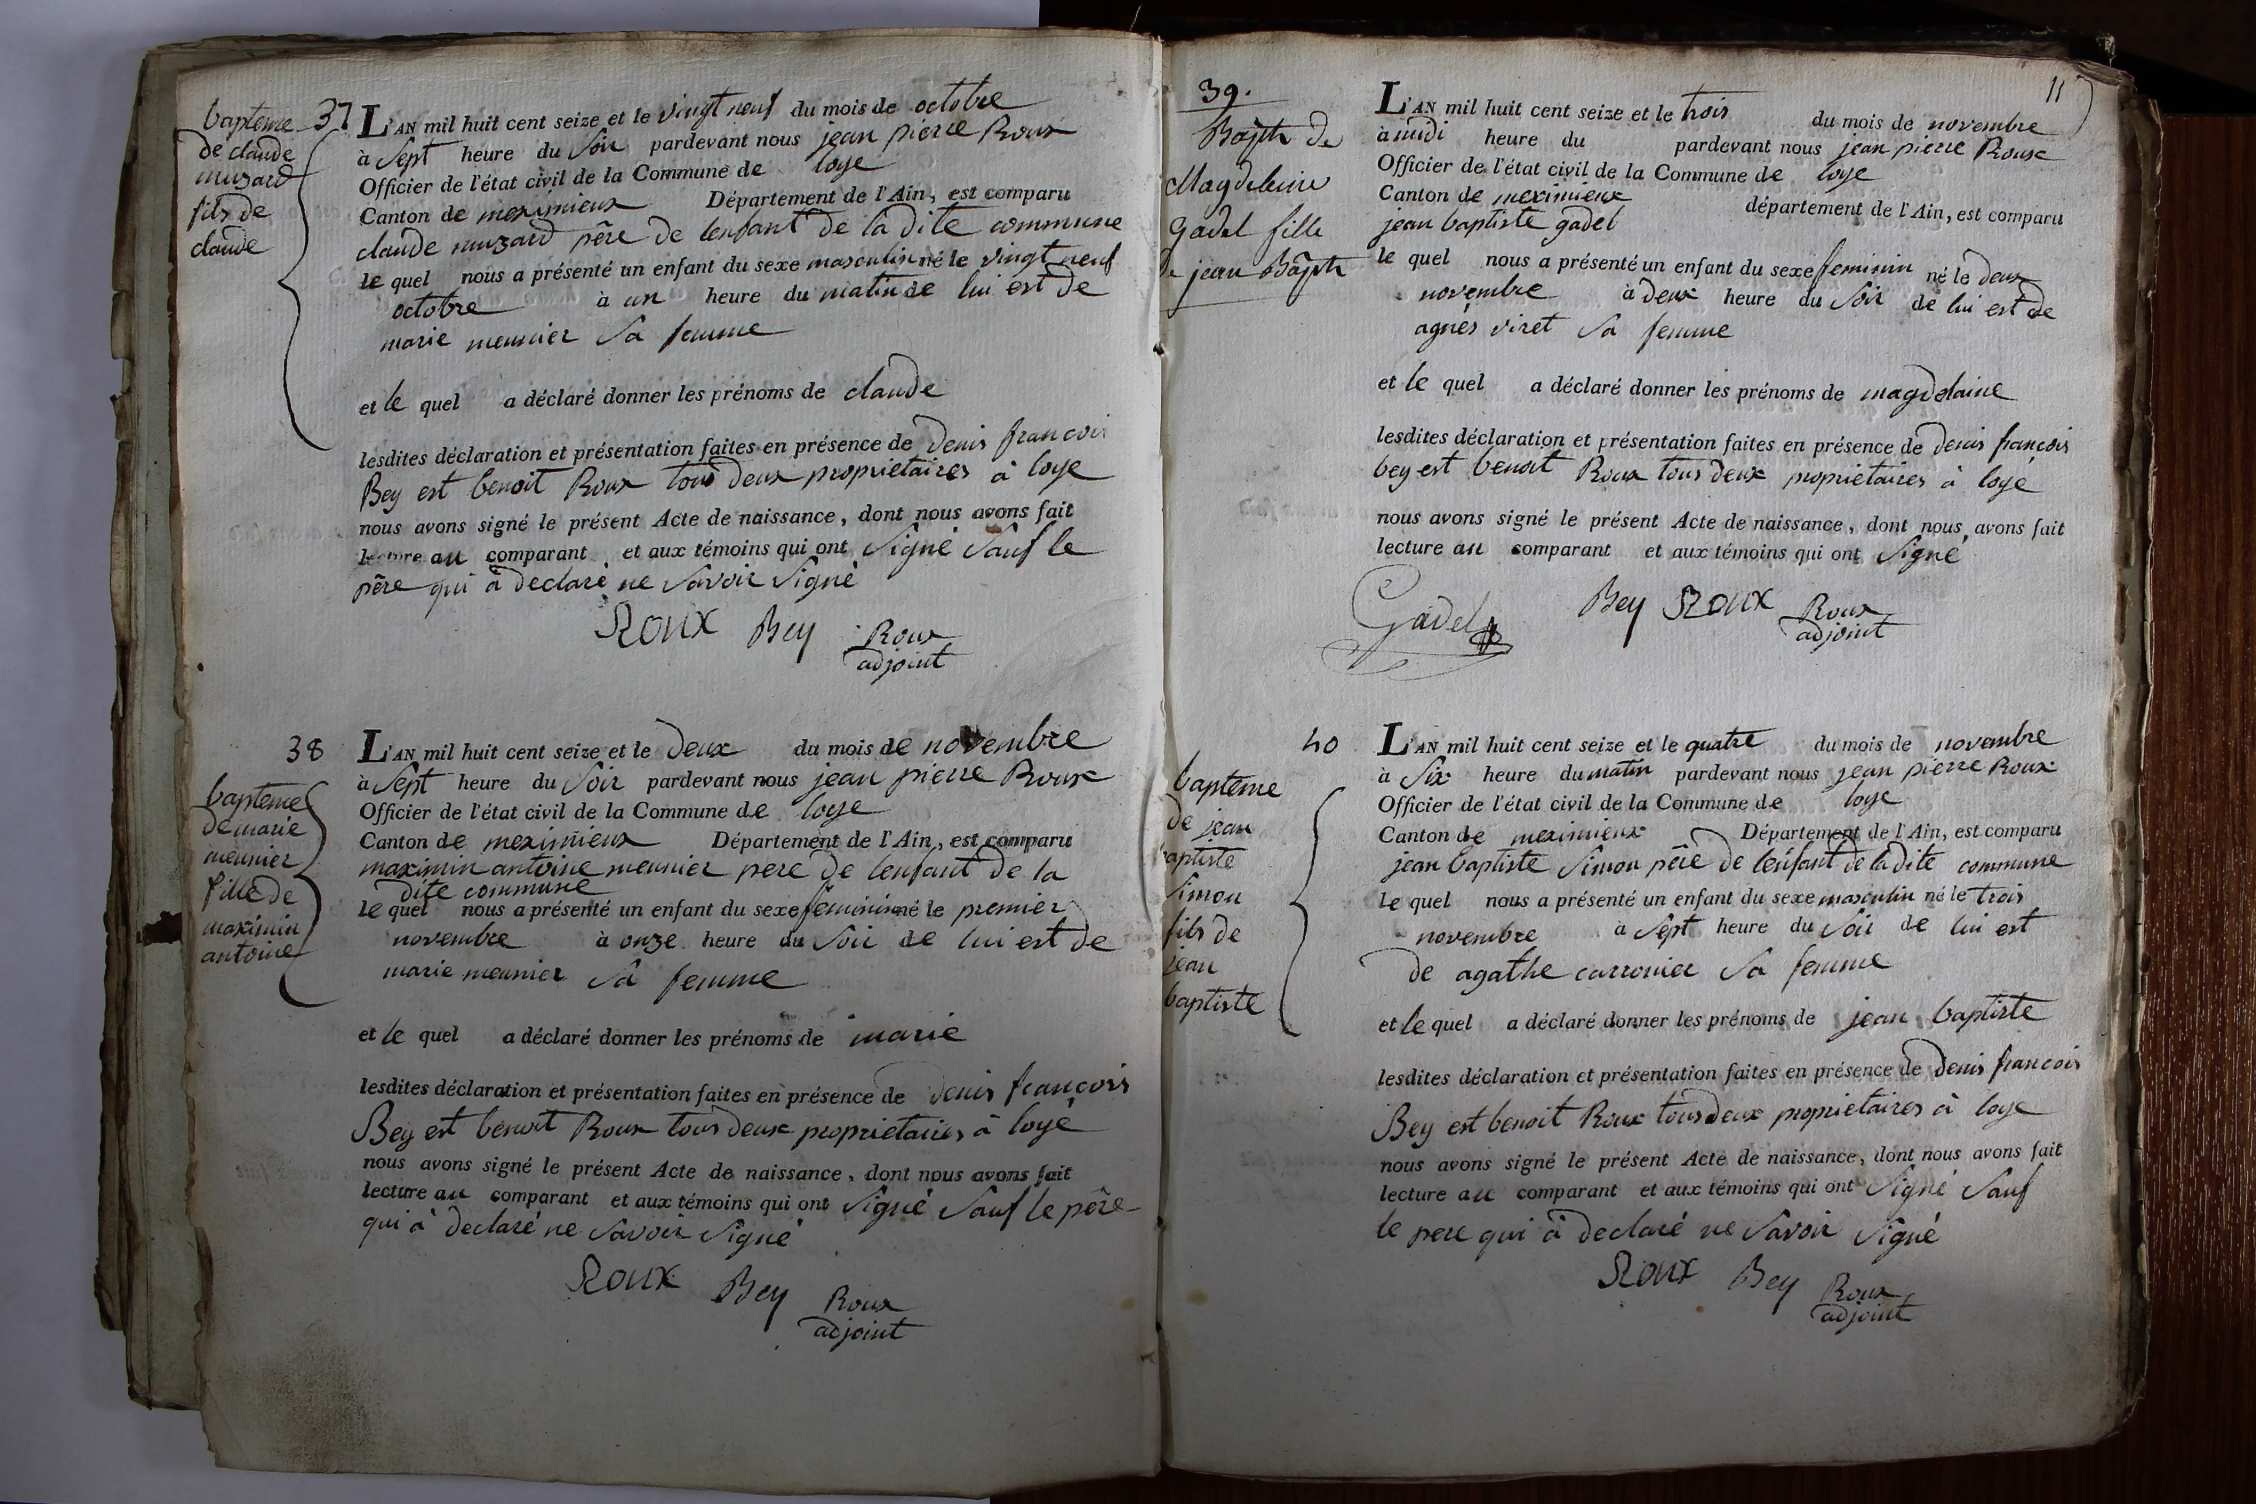 baptême 37
de claude
muzard
fils de
claude
L'AN mil huit cent seize et le vingt neuf du mois de octobre
à Sept heure du Soir pardevant nous jean pierre Roux
Officier de l'état civil de la Commune de loye
Canton de meximieux Département de l'Ain, est comparu
claude muzard pêre de lenfant de la dite commune
le quel nous a présenté un enfant du sexe masculin né le vingt neuf
octobre à un heure du matin de lui est de
marie meunier Sa femme
et le quel a déclaré donner les prénoms de claude
lesdites déclaration et présentation faites en présence de Denis francois
Bey est benoit Roux tous deux proprietaires à loye
nous avons signé le présent Acte de naissance, dont nous avons fait
lecture au comparant et aux témoins qui ont Signé Sauf le
pêre qui à declaré ne Savoir Signé
Roux Bey Roux
adjoint
38
baptême
de marie
meunier
fille de
maximin
antoine
L'AN mil huit cent seize et le deux du mois de novembre
à Sept heure du Soir pardevant nous jean pierre Roux
Officier de l'état civil de la Commune de loye
Canton de meximieux Département de l'Ain, est comparu
maximin antoine meunier pere de lenfant de la
dite commune
le quel nous a présenté un enfant du sexe feminin né le premier
novembre à onze heure du Soir de lui est de
marie meunier Sa femme
et le quel a déclaré donner les prénoms de marie
lesdites déclaration et présentation faites en présence de denis francois
Bey est benoit Roux tous deux proprietaires à loye
nous avons signé le présent Acte de naissance, dont nous avons fait
lecture au comparant et aux témoins qui ont Signé Sauf le pêre
qui à declaré ne Savoir Signé
Roux Bey Roux
adjoint
11
39.
Bapth de
Magdeleine
Gadel fille
de jean Bapth
L'AN mil huit cent seize et le trois du mois de novembre
à midi heure du pardevant nous jean pierre Roux
Officier de l'état civil de la Commune de loye
Canton de meximieux département de l'Ain, est comparu
jean baptiste gadel
le quel nous a présenté un enfant du sexe feminin né le deux
novembre à deux heure du Soir de lui est de
agnès viret Sa femme
et le quel a déclaré donner les prénoms de magdelaine
lesdites déclaration et présentation faites en présence de denis françois
bey est benoit Roux tous deux proprietaires à loye
nous avons signé le présent Acte de naissance, dont nous avons fait
lecture au comparant et aux témoins qui ont Signé
Gadel Bey Roux Roux
adjoint
40
baptême
de jean
baptiste
Simon
fils de
jean
baptiste
L'AN mil huit cent seize et le quatre du mois de novembre
à Six heure du matin pardevant nous jean pierre Roux
Officier de l'état civil de la Commune de loye
Canton de meximieux Département de l'Ain, est comparu
jean baptiste Simon pêre de lenfant de la dite commune
le quel nous a présenté un enfant du sexe masculin né le trois
novembre à Sept heure du Soir de lui est
de agathe carronier Sa femme
et le quel a déclaré donner les prénoms de jean baptiste
lesdites déclaration et présentation faites en présence de Denis francois
Bey est benoit Roux tous deux proprietaires à loye
nous avons signé le présent Acte de naissance, dont nous avons fait
lecture au comparant et aux témoins qui ont Signé Sauf
le pere qui à declaré ne Savoir Signé
Roux Bey Roux
adjoint